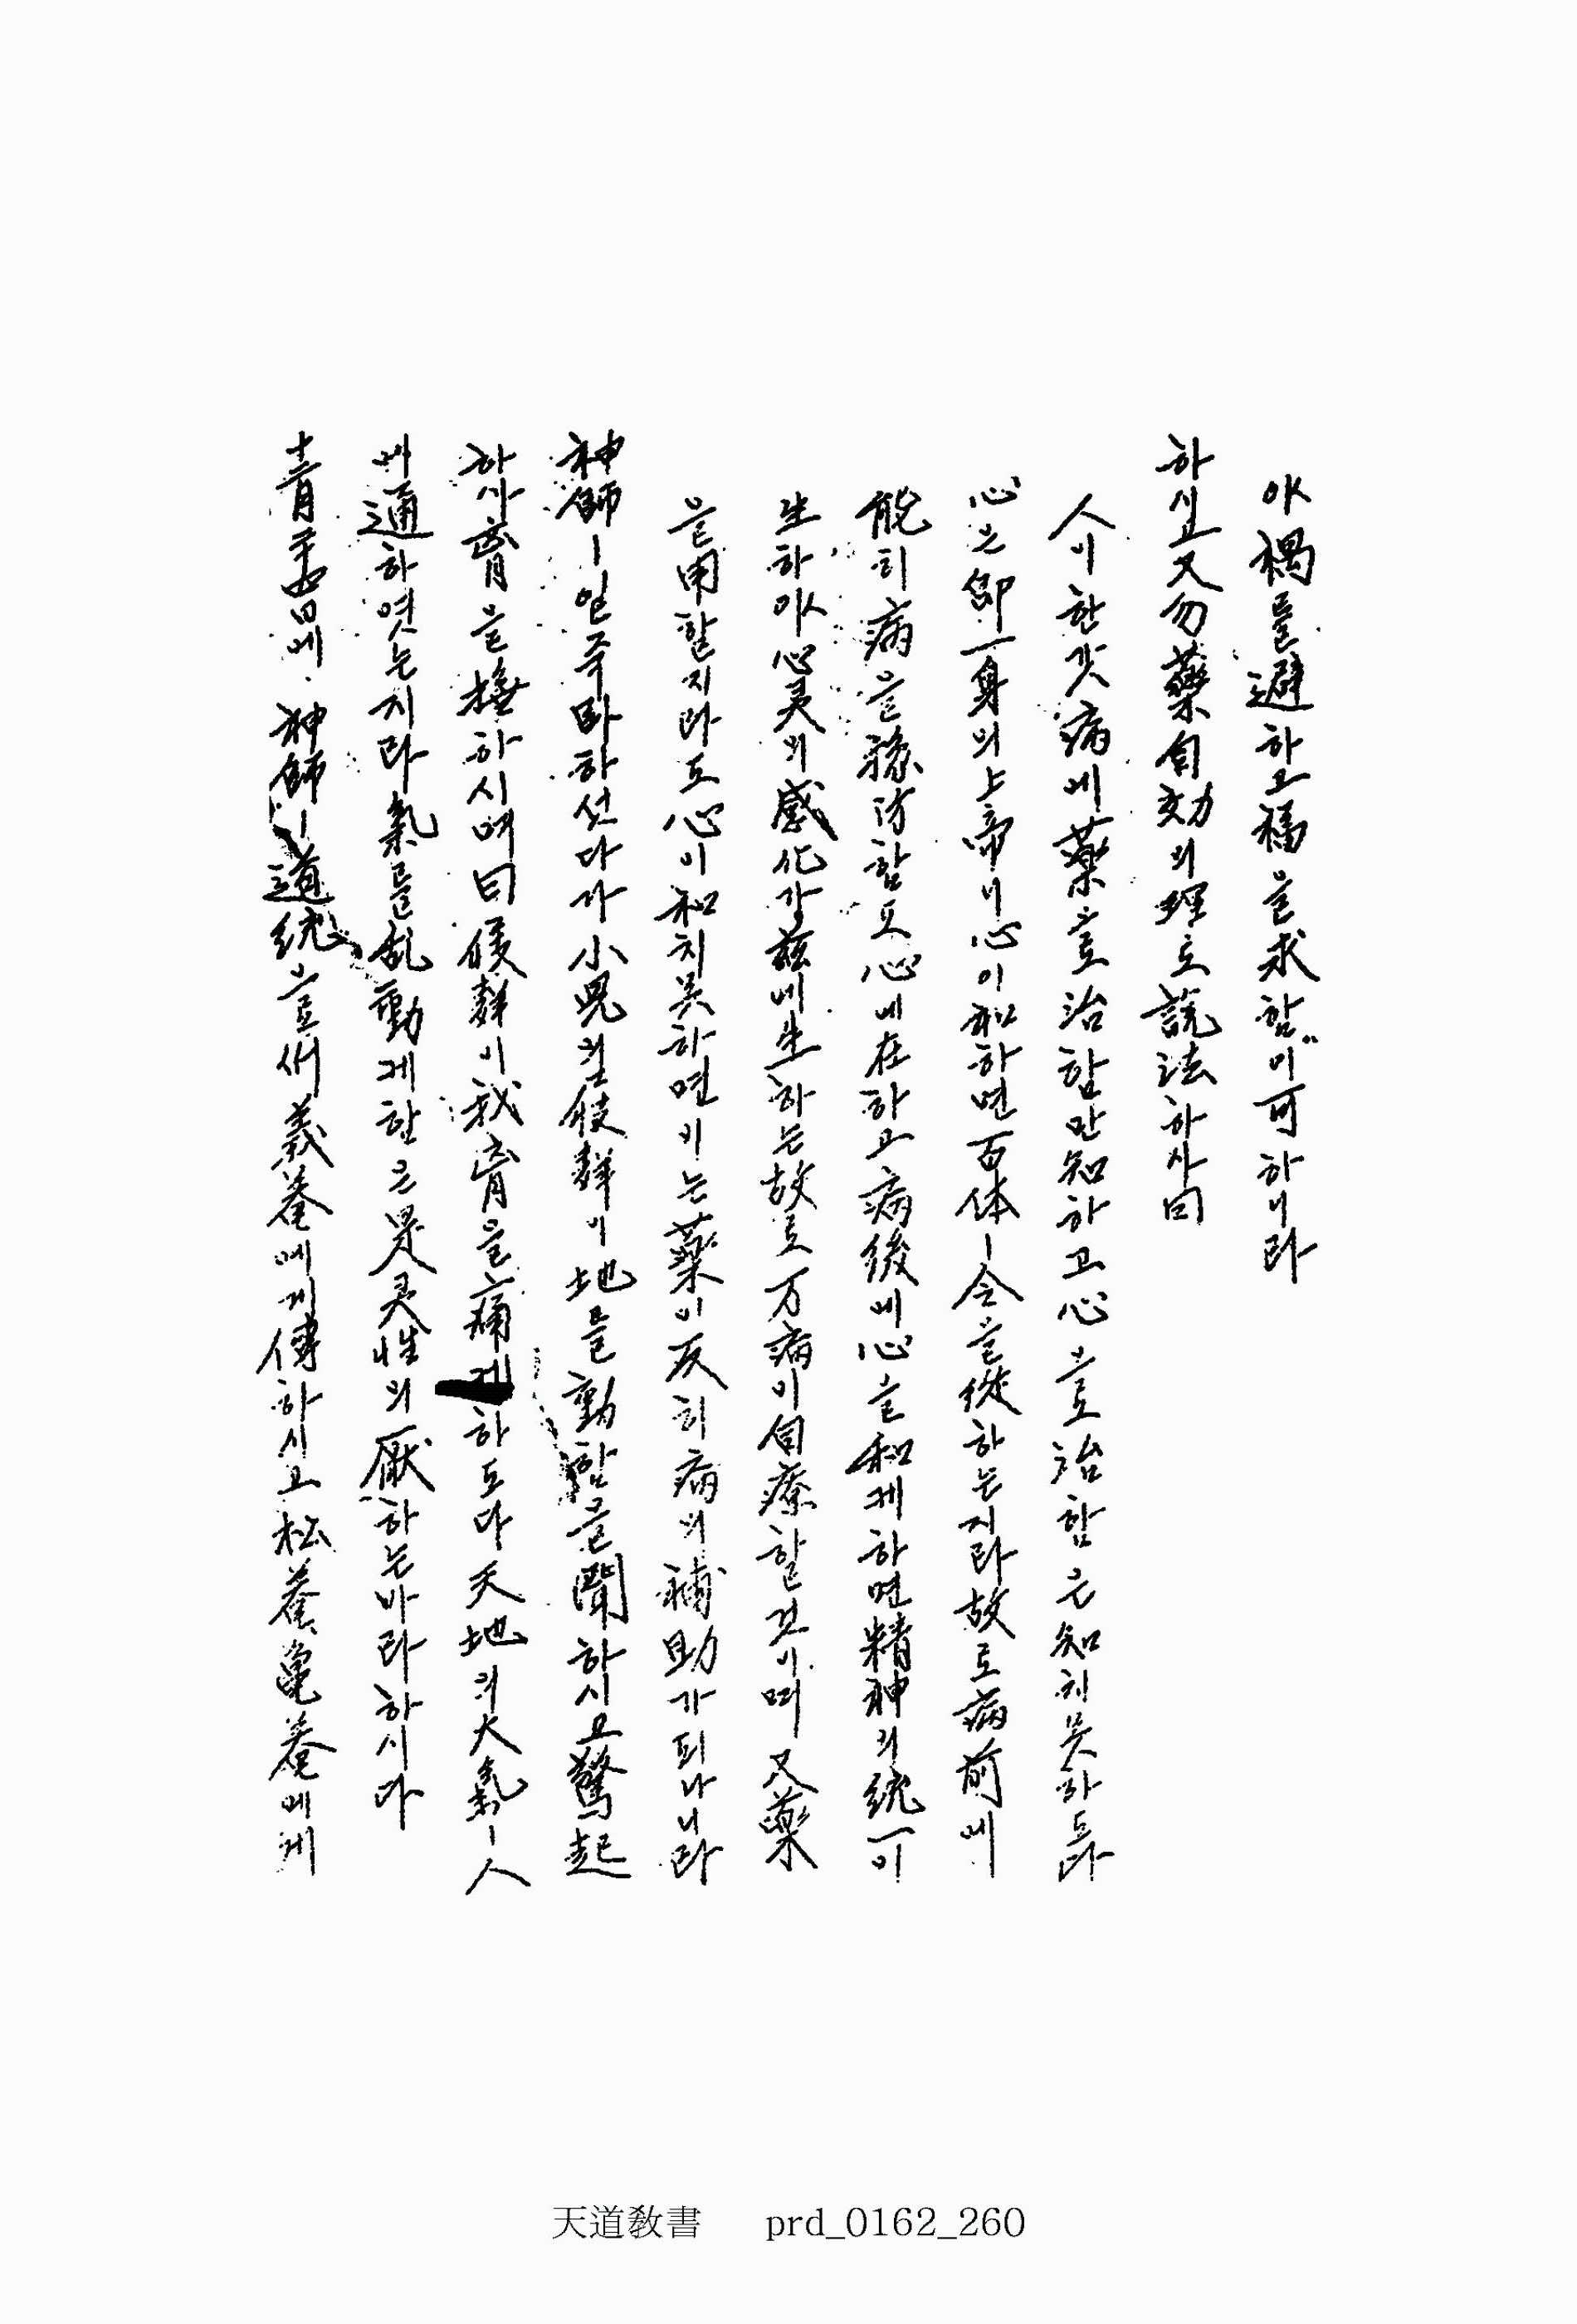 야 禍를 避하고 福을 求함이 可하니라
하시고 又 勿藥自効의 理로 說法하사 曰
人이 한갓 病에 藥으로 治함만 知하고 心으로 治함은 知치 못하도다
心은 卽 一身의 上帝니 心이 和하면 百体ㅣ 令을 從하는지라 故로 病前에
能히 病을 豫防함도 心에 在하고 病後에 心을 和게 하면 精神의 統一이
生하야 心灵의 感化가 玆에 生하는 故로 万病이 自療할 것이며 又 藥
을 用할지라도 心이 和치 못하면 이는 藥이 反히 病의 補助가 되나니라
神師ㅣ 일즉 臥하섯다가 小兒의 屐聲이 地를 動함을 聞하시고 驚起
하사 胷을 撫하시며 曰 屐聲이 我胷을 痛게 하도다 天地의 大氣ㅣ 人
에 通하엿는지라 氣를 乱動게 함은 是 灵性의 厭하는 바라 하시다
十二月二十四日에 神師ㅣ 道統으로써 義菴에게 傳하시고 松菴、亀菴에게
天道敎書 prd_0162_260